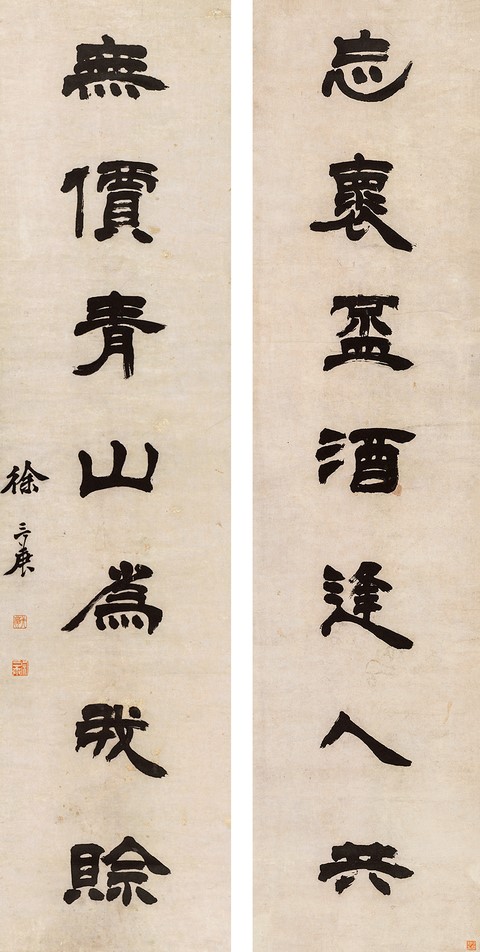 忘褱盃酒逢人共
無價青山爲我賒
徐三庚